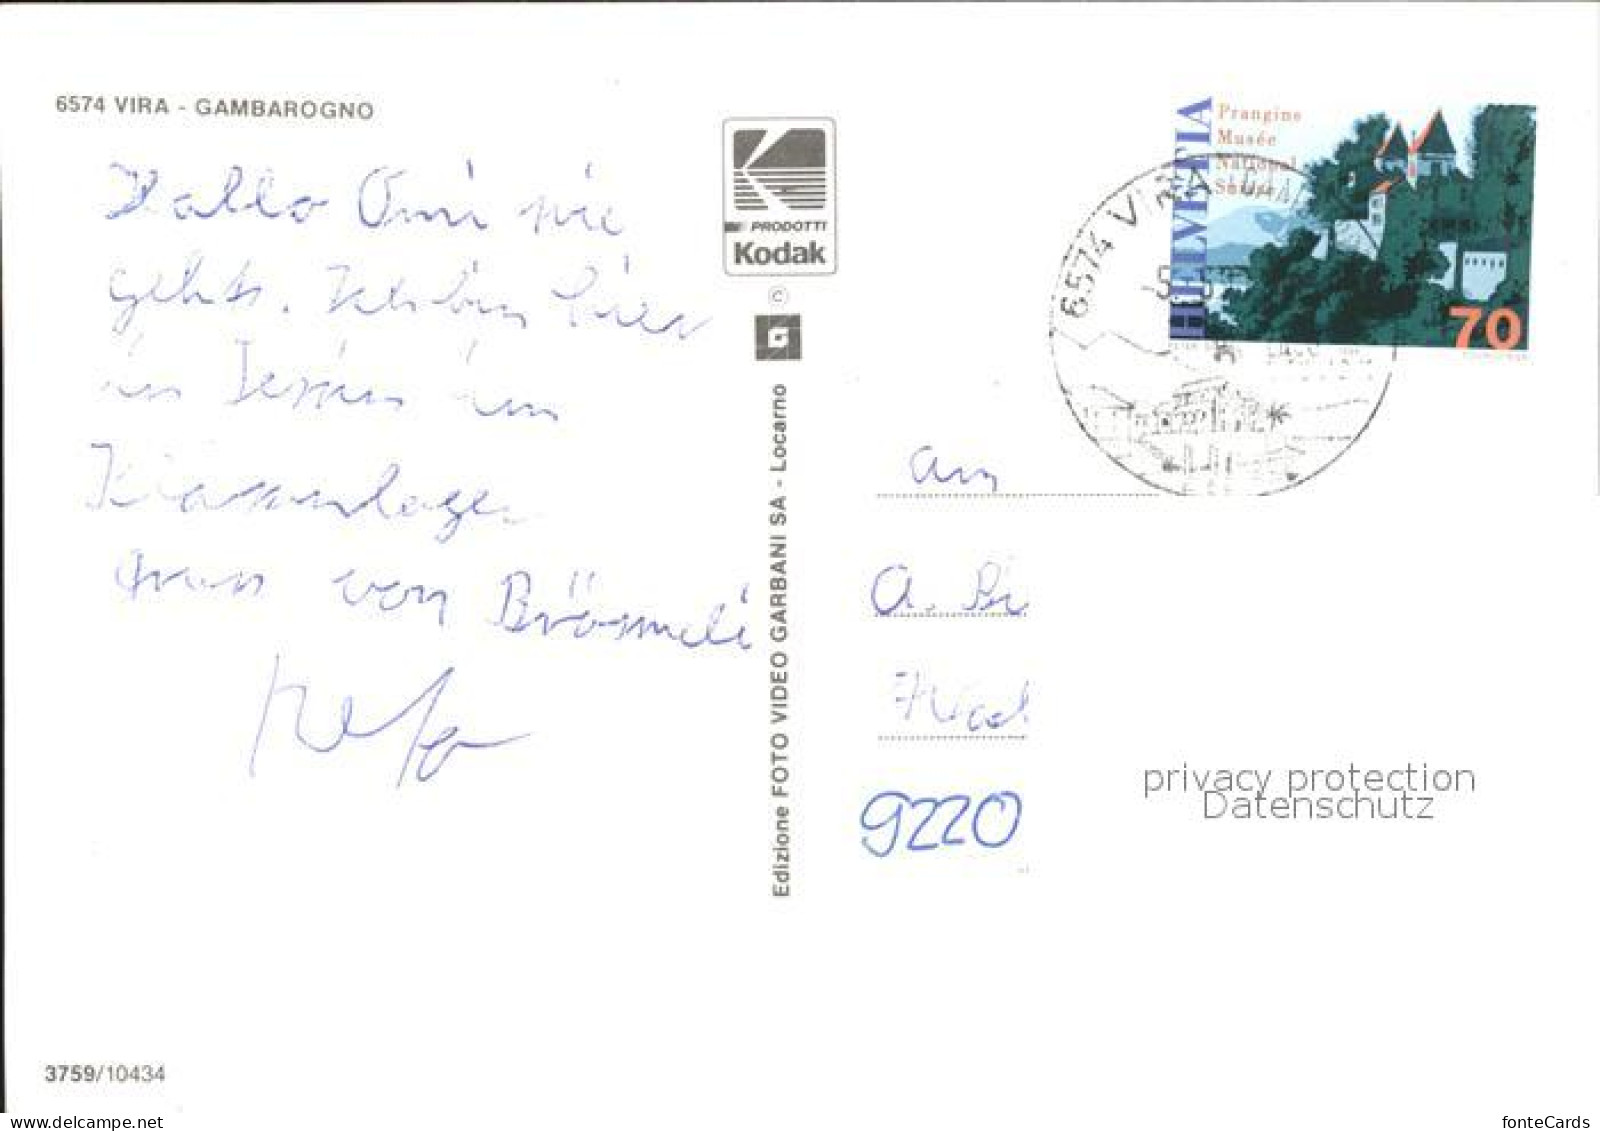 6574 VIRA - GAMBAROGNO
Hallo Omi wie
gehts. Ich bin hier
im Tessin im
Klassenlager
von
PRODOTTI
Kodak
©
G
Edizione FOTO VIDEO GARBANI SA - Locarno
HELVETIA
Prangins
Musée
National
Suisse
70
6574 VIRA
an
9220
privacy protection
Datenschutz
3759/10434
fonteCards